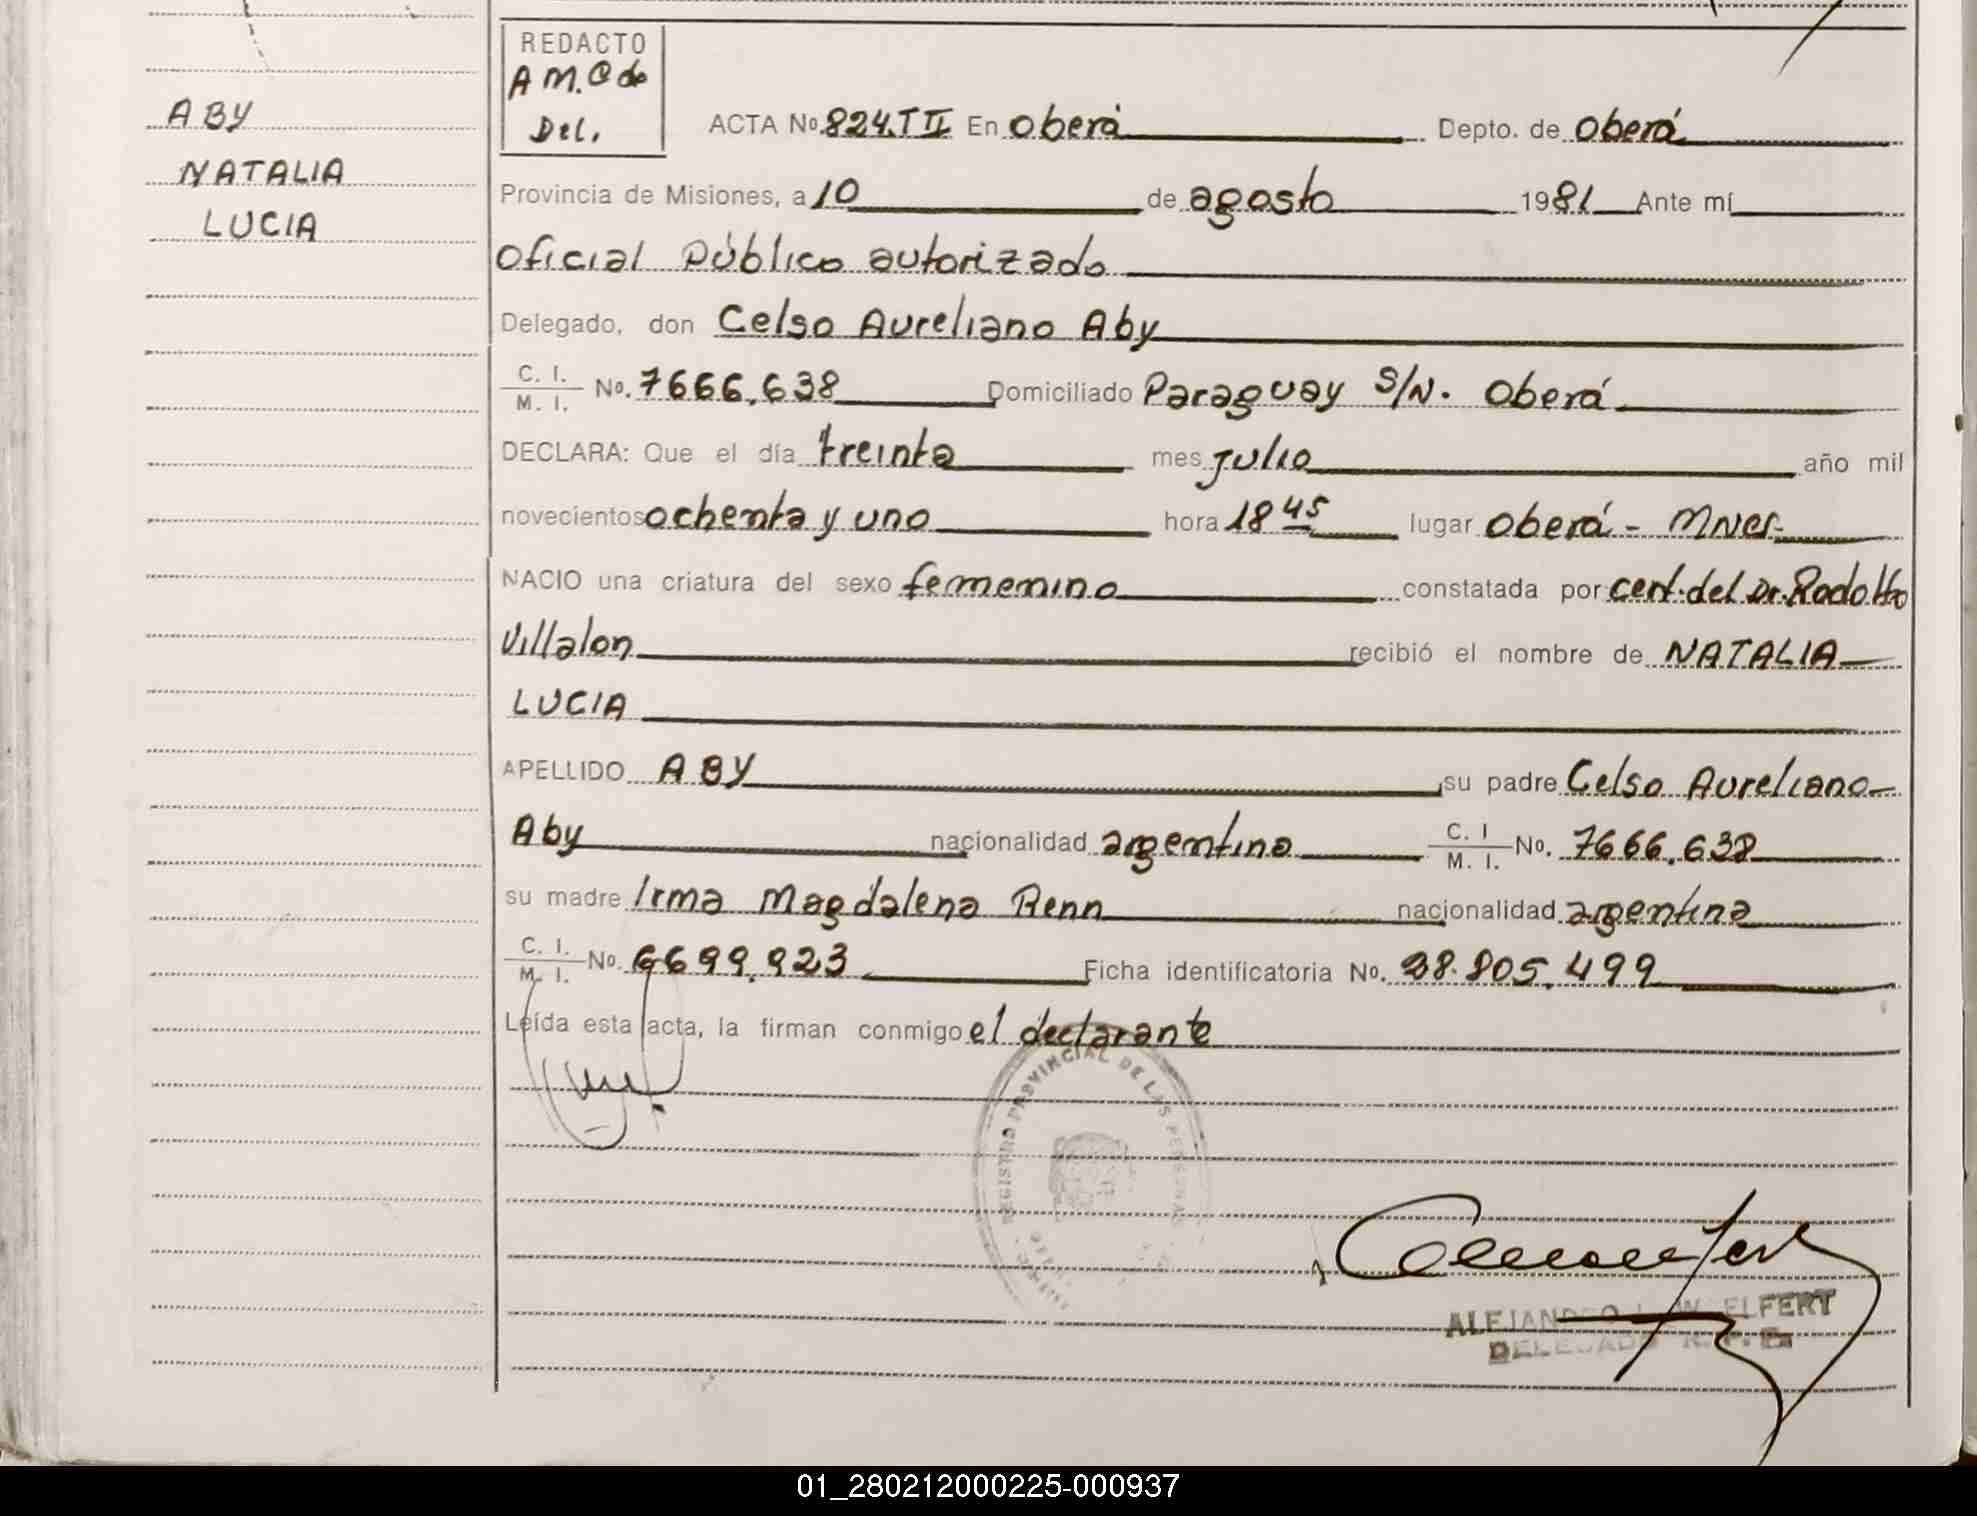 ABY
NATALIA
LUCIA
REDACTO
A M. C de
Del.
ACTA No 824.T II En Oberá Depto. de Oberá
Provincia de Misiones, a 10 de agosto 1981 Ante mí
Oficial Público autorizado
Delegado, don Celso Aureliano Aby
C. I. / M. I. No. 7666.638 Domiciliado Paraguay S/N. Oberá
DECLARA: Que el día treinta mes julio año mil
novecientos ochenta y uno hora 18 45 lugar Oberá - Mnes.
NACIO una criatura del sexo femenino constatada por cert. del Dr. Rodolfo
Villalon recibió el nombre de NATALIA
LUCIA
APELLIDO ABY su padre Celso Aureliano
Aby nacionalidad argentina C. I / M. I. No. 7666.638
su madre Irma Magdalena Renn nacionalidad argentina
C. I. / M. I. No. 6699.923 Ficha identificatoria No. 28.805.499
Leída esta acta, la firman conmigo el declarante
REGISTRO PROVINCIAL DE LAS PERSONAS
ALEJANDRO L. WOELFERT
DELEGADO R. P. P.
01_280212000225-000937